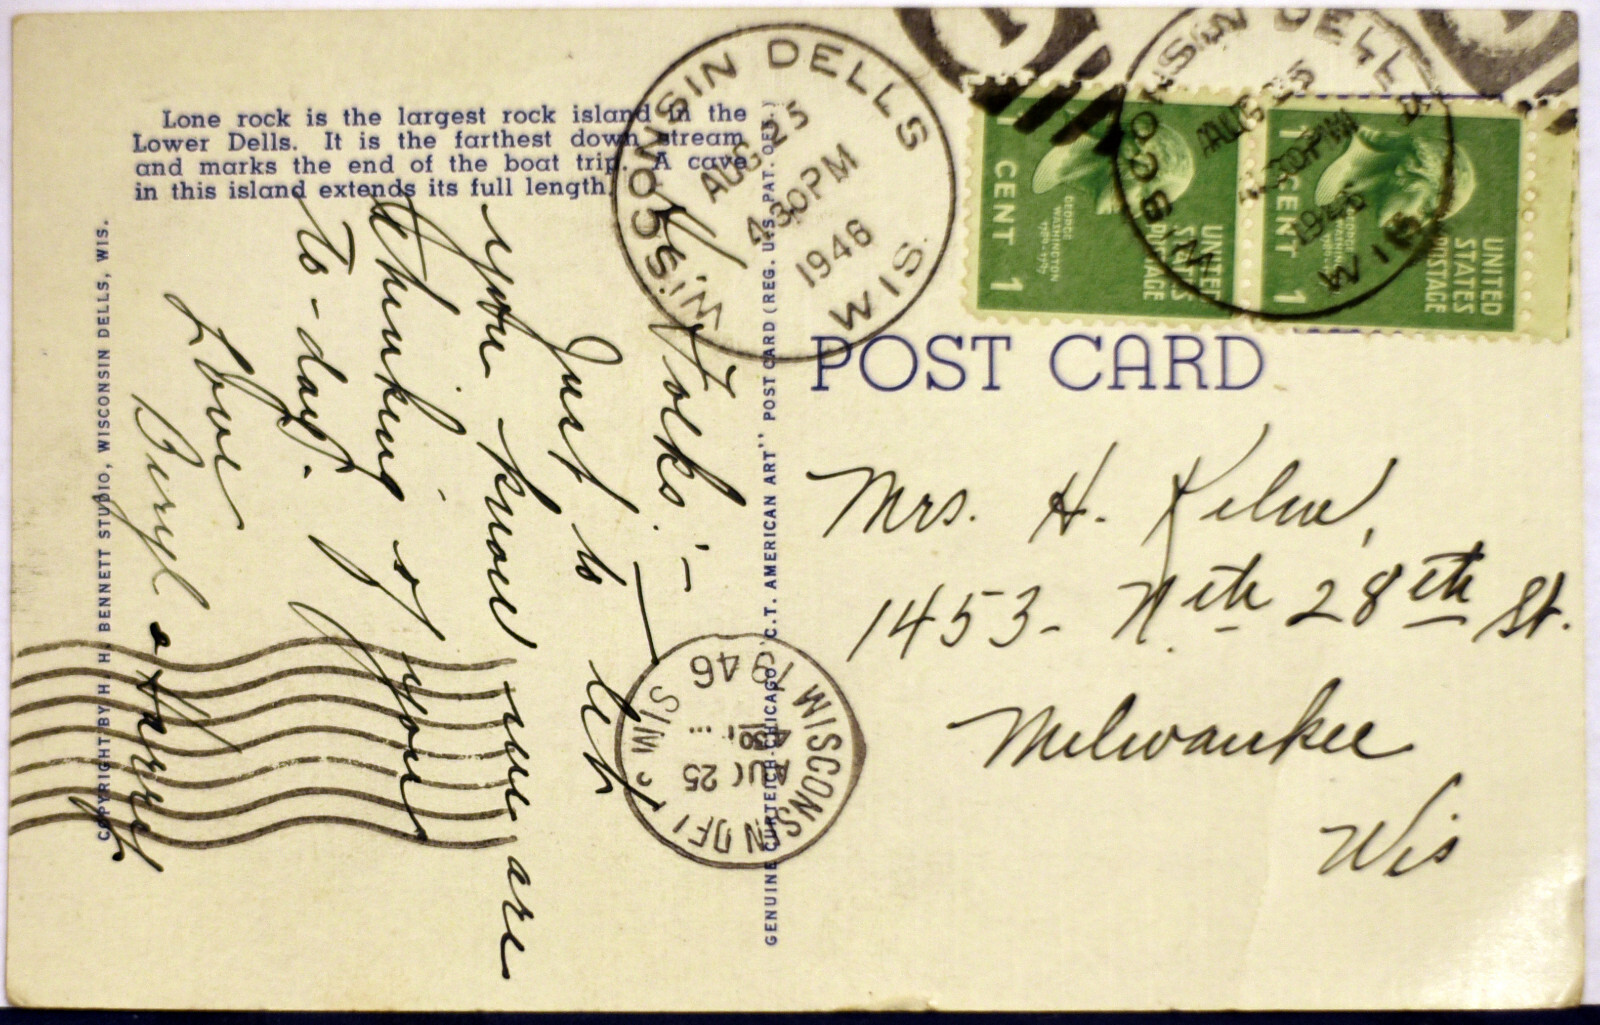 Lone rock is the largest rock island in the
Lower Dells. It is the farthest down stream
and marks the end of the boat trip. A cave
in this island extends its full length.
COPYRIGHT BY H. H. BENNETT STUDIO, WISCONSIN DELLS, WIS.
Hi Folks:—
Just to let
you know we are
thinking of you
to-day.
Love
Beryl & Harriet
GENUINE CURTEICH-CHICAGO "C.T. AMERICAN ART" POST CARD (REG. U.S. PAT. OFF.)
WISCONSIN DELLS
AUG 25
4 30 PM
1946
WIS.
WISCONSIN DELLS
AUG 25
4 30 PM
1946
WIS.
1 CENT 1
GEORGE
WASHINGTON
1789-1797
UNITED
STATES
POSTAGE
1 CENT 1
GEORGE
WASHINGTON
UNITED
STATES
POSTAGE
POST CARD
Mrs. H.
1453- Nth 28th St.
Milwaukee
Wis
WISCONSIN
AUG 25
1946
WIS